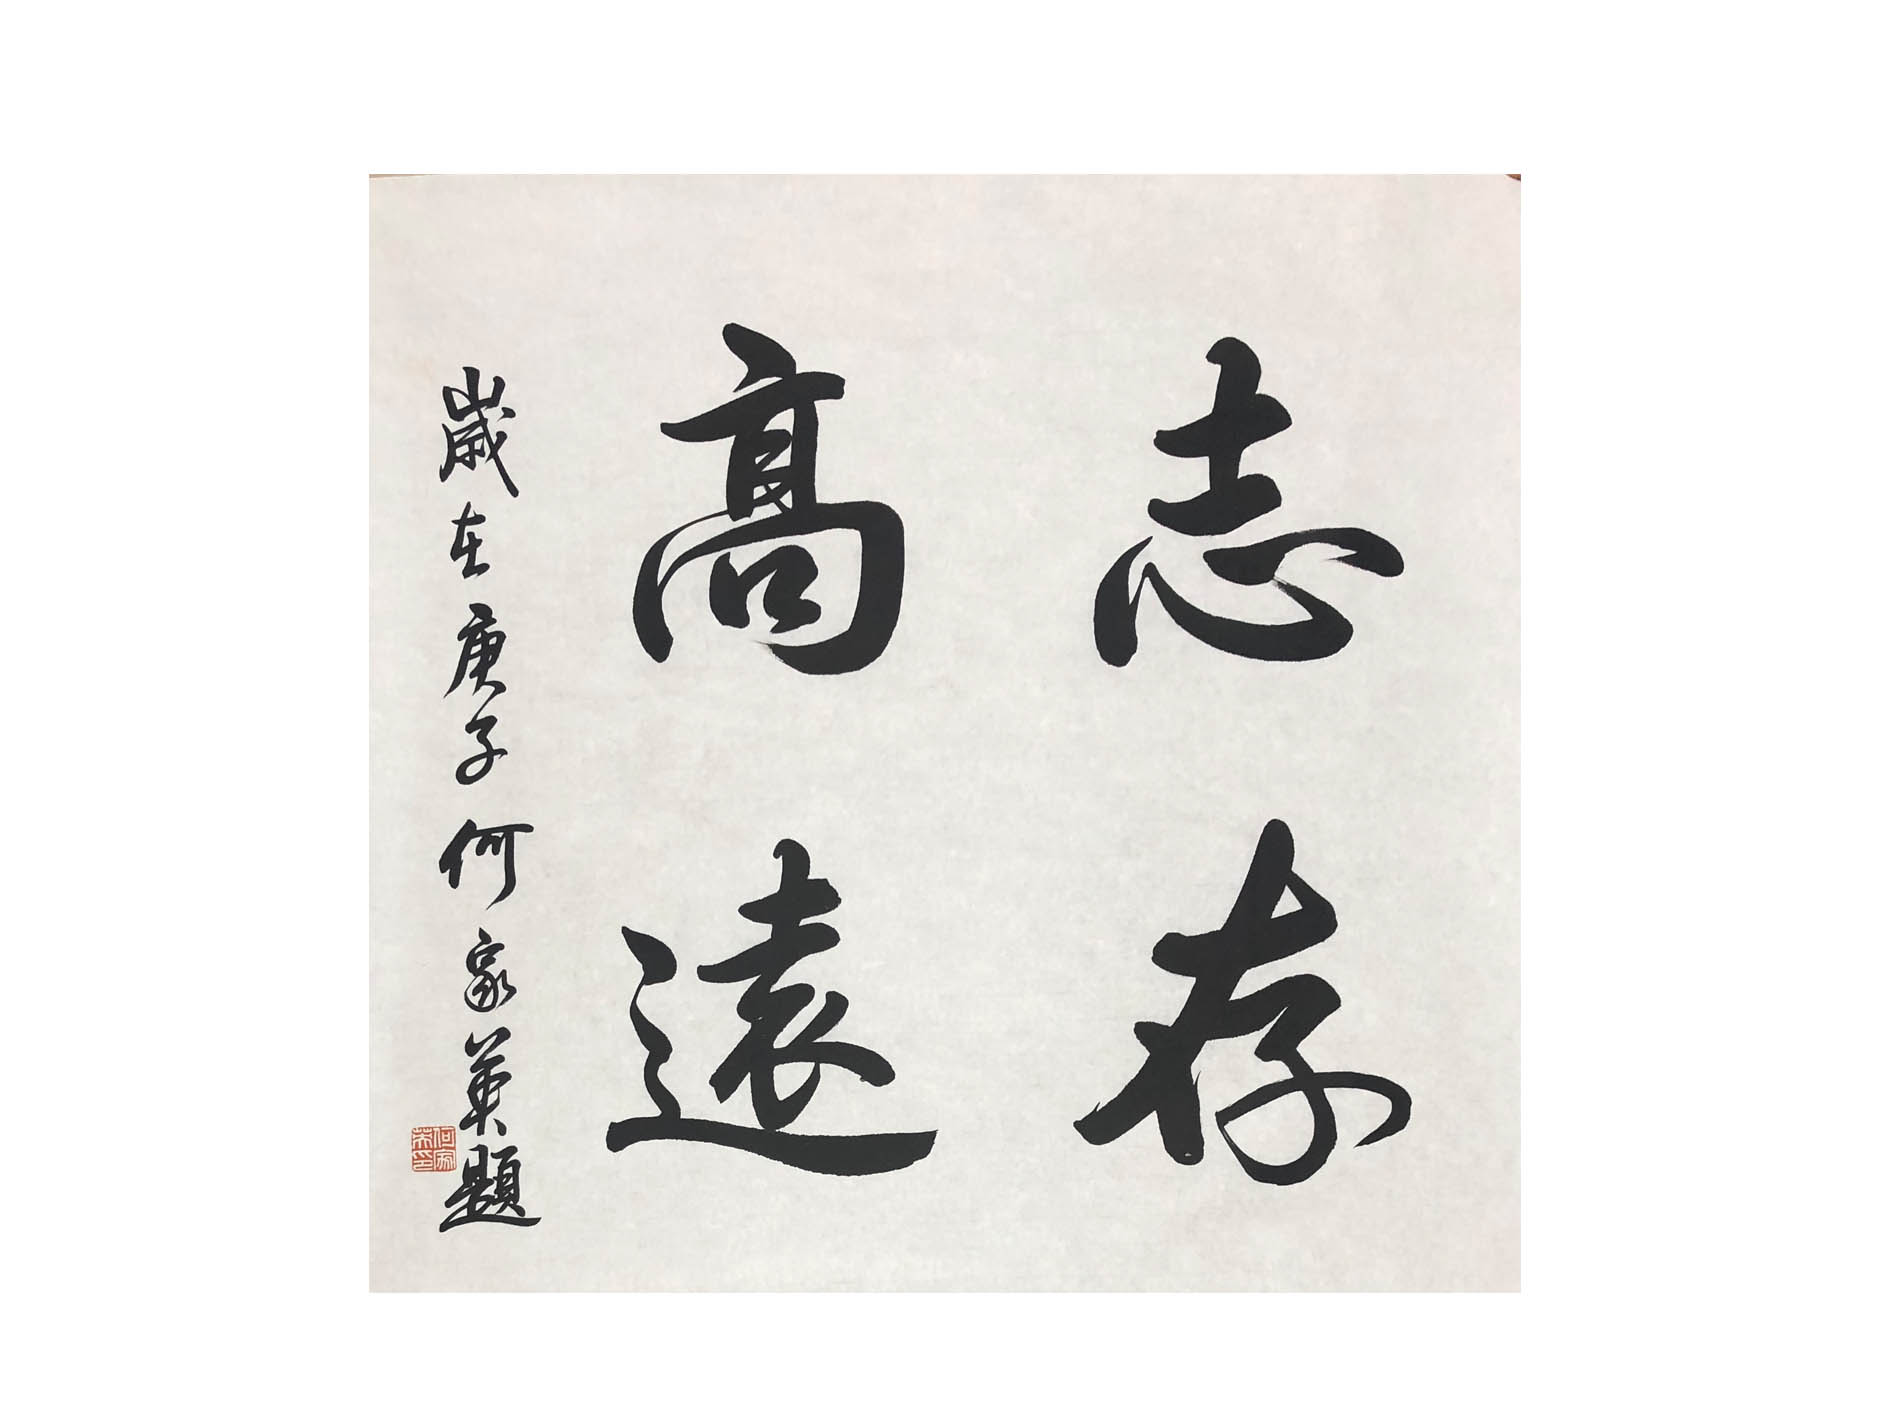 志存
高遠
歲在庚子何家英題
何家英印